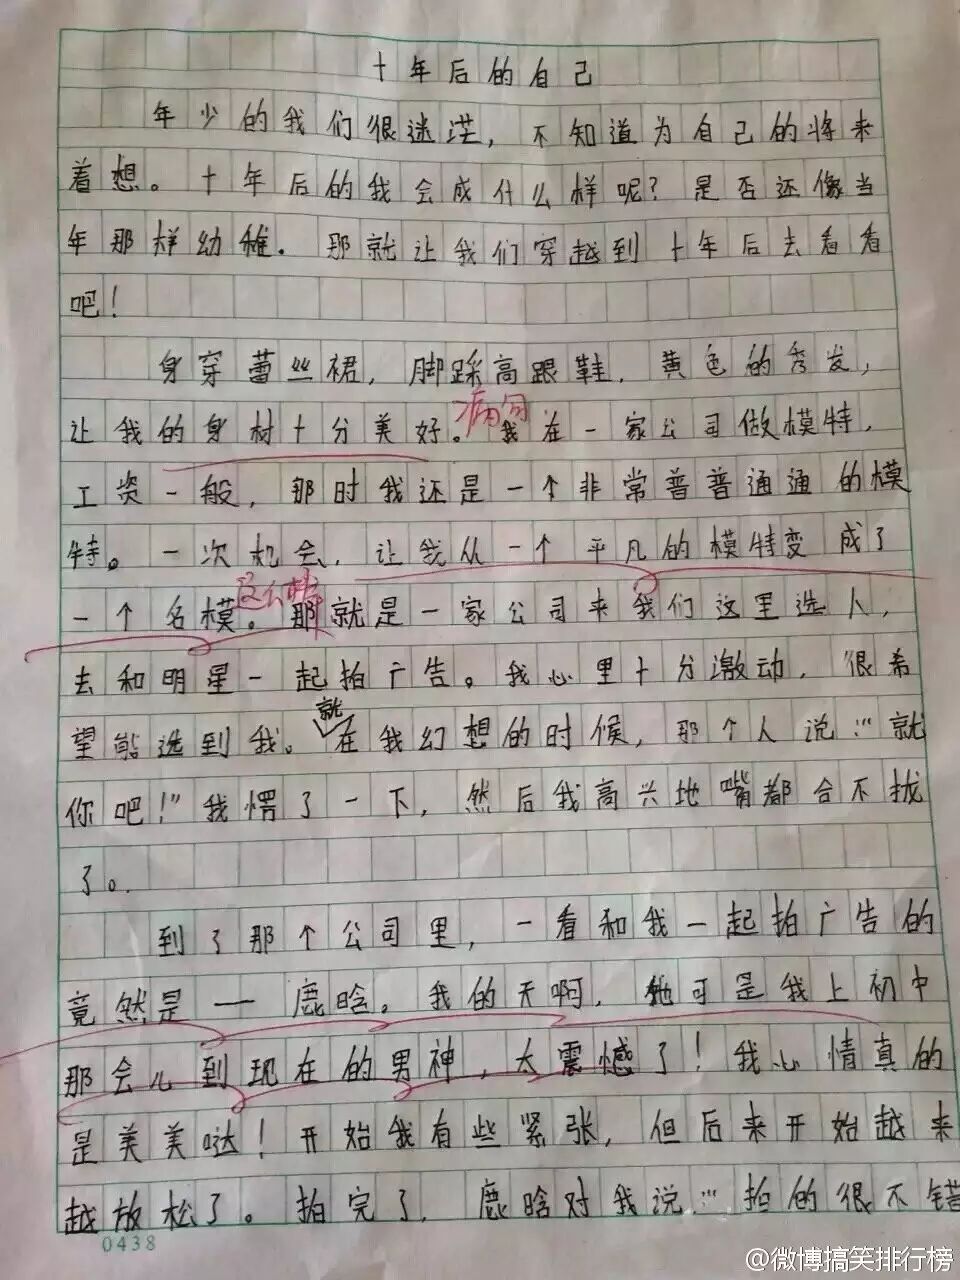 十年后的自己
年少的我们很迷茫，不知道为自己的将来
着想。十年后的我会成什么样呢？是否还像当
年那样幼稚．那就让我们穿越到十年后去看看
吧！
身穿蕾丝裙，脚踩高跟鞋，黄色的秀发，
病句
让我的身材十分美好。我在一家公司做模特，
工资一般，那时我还是一个非常普普通通的模
特。一次机会，让我从一个平凡的模特变成了
这么
一个名模。那就是一家公司来我们这里选人，
去和明星一起拍广告。我心里十分激动，很希
就
望能选到我。在我幻想的时候，那个人说："就
你吧！"我愣了一下，然后我高兴地嘴都合不拢
了。
到了那个公司里，一看和我一起拍广告的
竟然是——鹿晗。我的天啊，他可是我上初中
那会儿到现在的男神，太震憾了！我心情真的
是美美哒！开始我有些紧张，但后来开始越来
越放松了。拍完了，鹿晗对我说："拍的很不错
0438
@微博搞笑排行榜